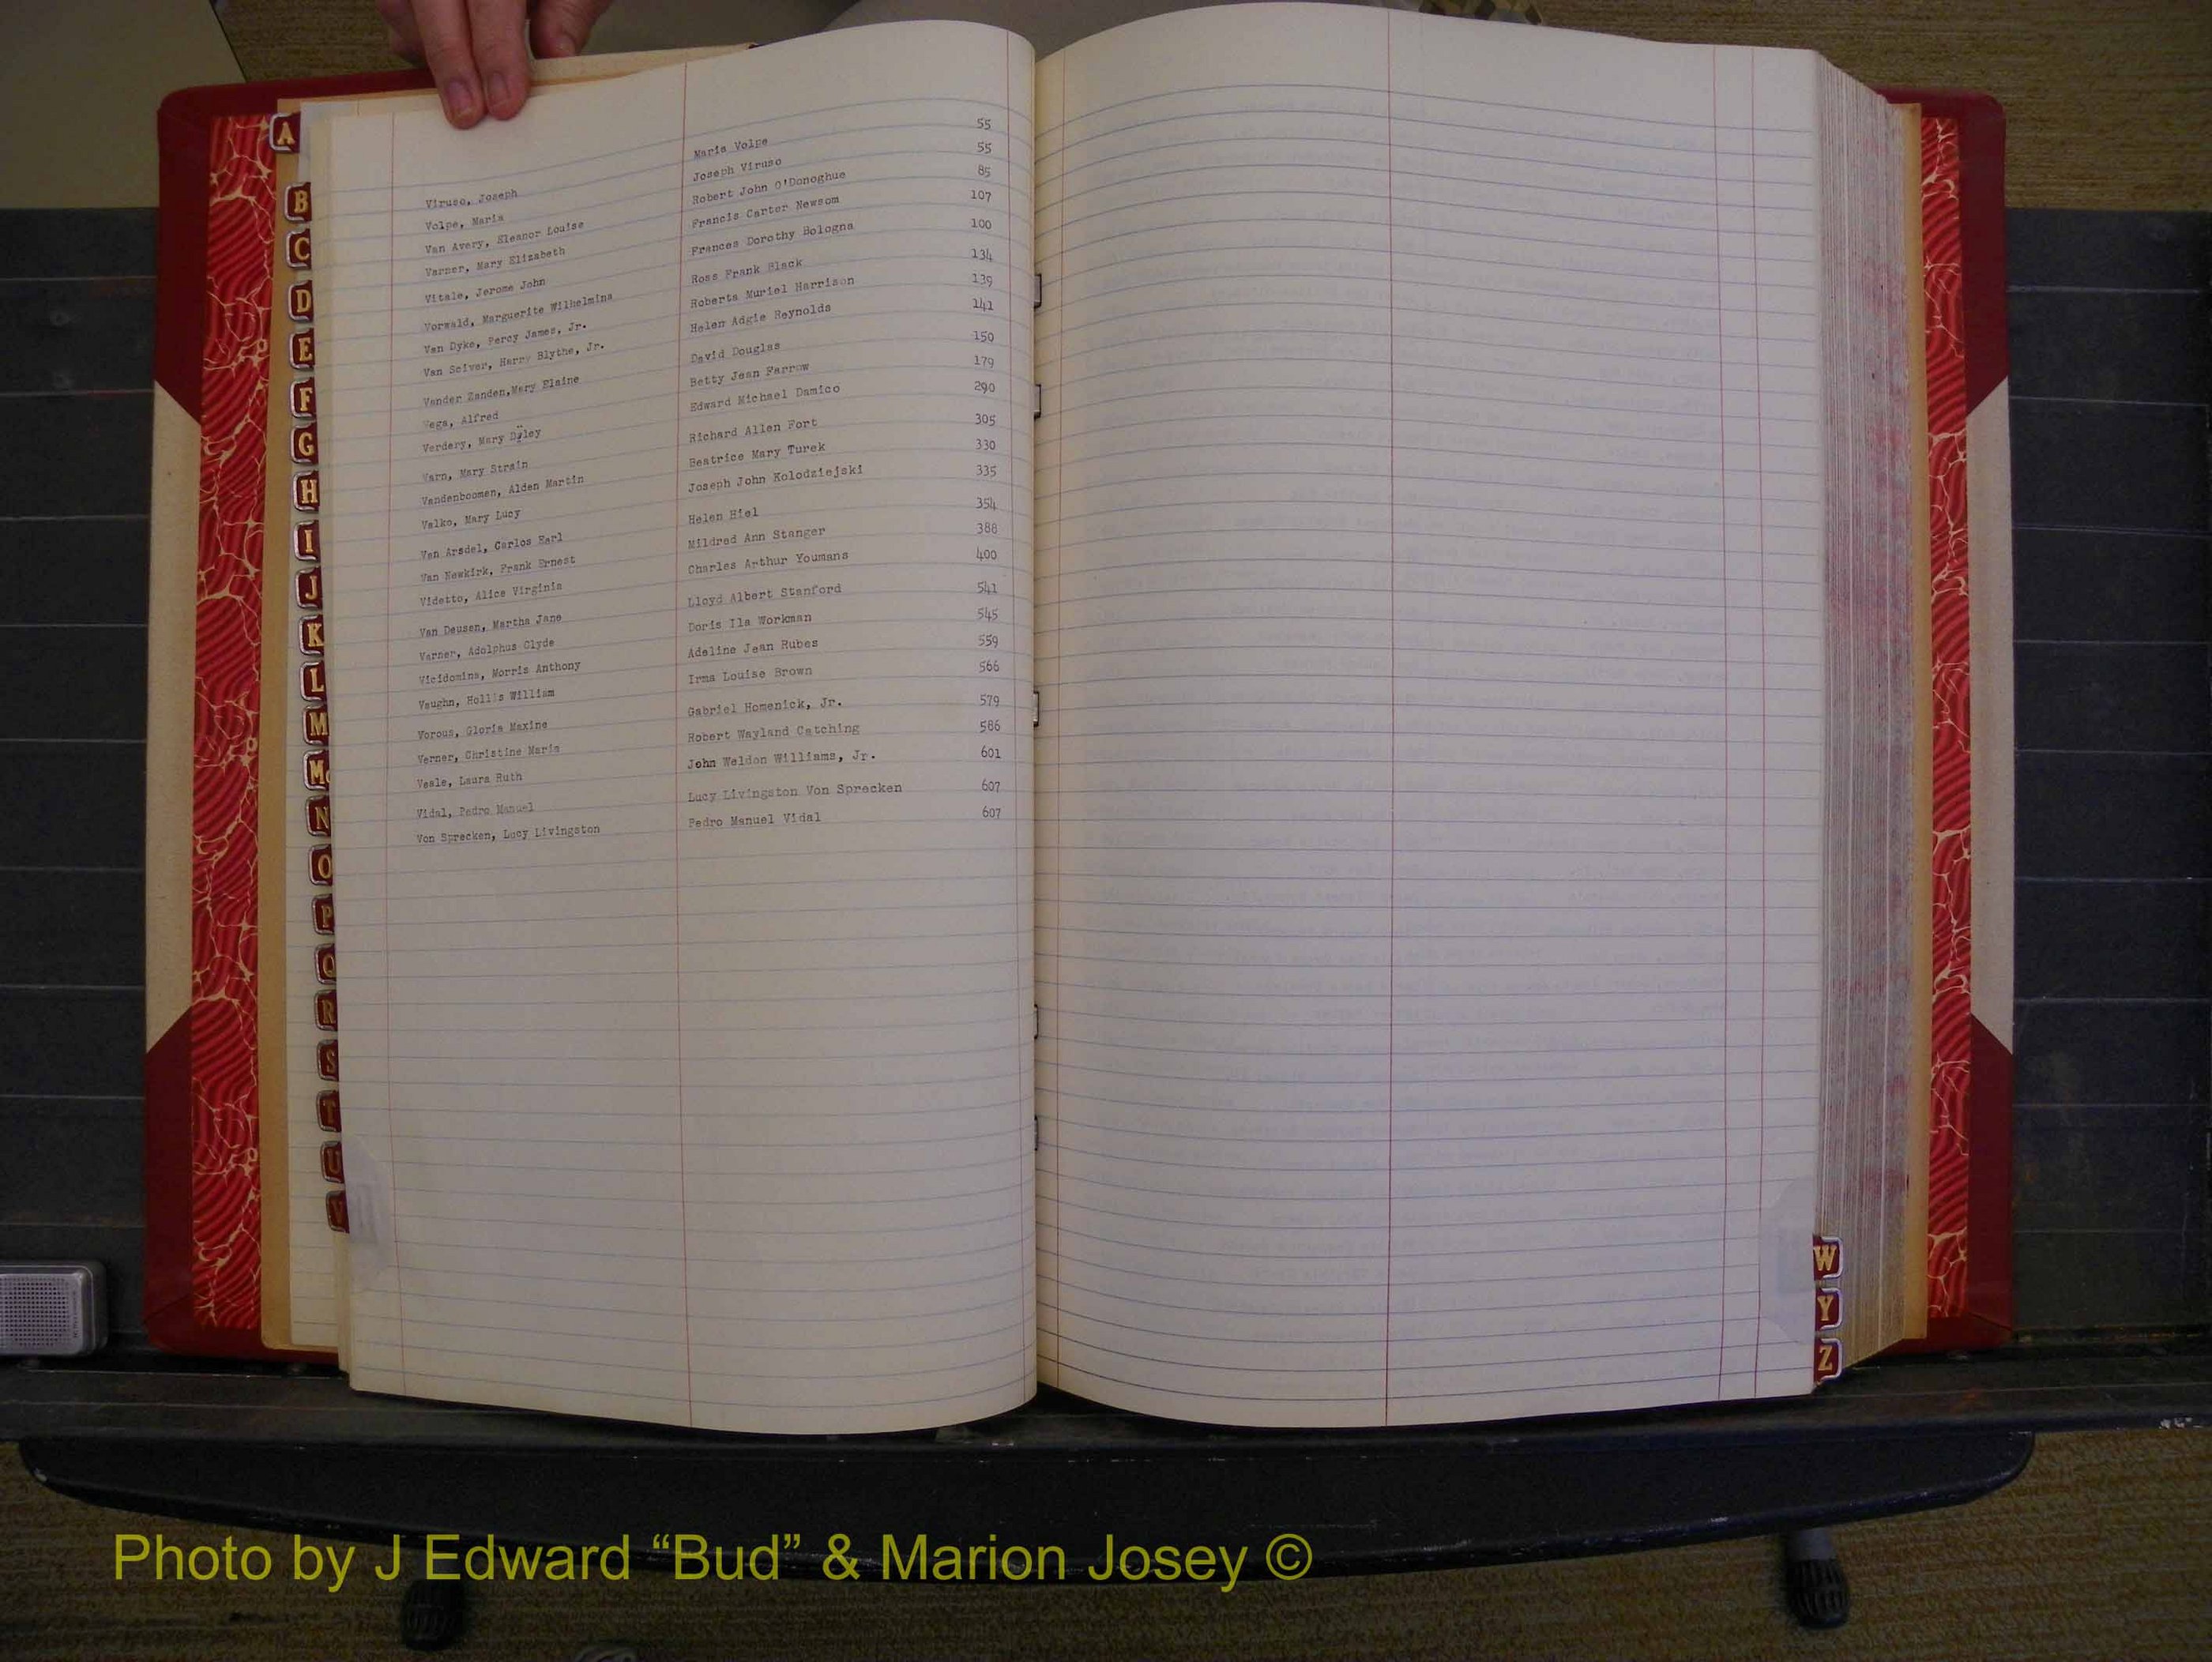 Viruso, Joseph Maria Volpe 55
Volpe, Maria Joseph Viruso 55
Van Avery, Eleanor Louise Robert John O'Donoghue 85
Varner, Mary Elizabeth Francis Carter Newsom 107
Vitale, Jerome John Frances Dorothy Bologna 100
Vorwald, Marguerite Wilhelmina Ross Frank Black 134
Van Dyke, Percy James, Jr. Roberta Muriel Harrison 139
Van Sciver, Harry Blythe, Jr. Helen Adgie Reynolds 141
Vander Zanden,Mary Elaine David Douglas 150
Vega, Alfred Betty Jean Farrow 179
Verdery, Mary Edward Michael Damico 290
Varn, Mary Strain Richard Allen Fort 305
Vandenboomen, Alden Martin Beatrice Mary Turek 330
Valko, Mary Lucy Joseph John Kolodziejski 335
Van Arsdel, Carlos Earl Helen Hiel 354
Van Newkirk, Frank Ernest Mildred Ann Stanger 388
Videtto, Alice Virginia Charles Arthur Youmans 400
Van Deusen, Martha Jane Lloyd Albert Stanford 541
Varner, Adolphus Clyde Doris Ila Workman 545
Vicidomina, Morris Anthony Adeline Jean Rubes 559
Vaughn, Hollis William Irma Louise Brown 566
Vorous, Gloria Maxine Gabriel Homenick, Jr. 579
Verner, Christine Maria Robert Wayland Catching 586
Veale, Laura Ruth John Weldon Williams, Jr. 601
Vidal, Pedro Manuel Lucy Livingston Von Sprecken 607
Von Sprecken, Lucy Livingston Pedro Manuel Vidal 607
A
B
C
D
E
F
G
H
I
J
K
L
M
Mc
N
O
P
Q
R
S
T
U
V
W
Y
Z
Photo by J Edward “Bud” & Marion Josey ©